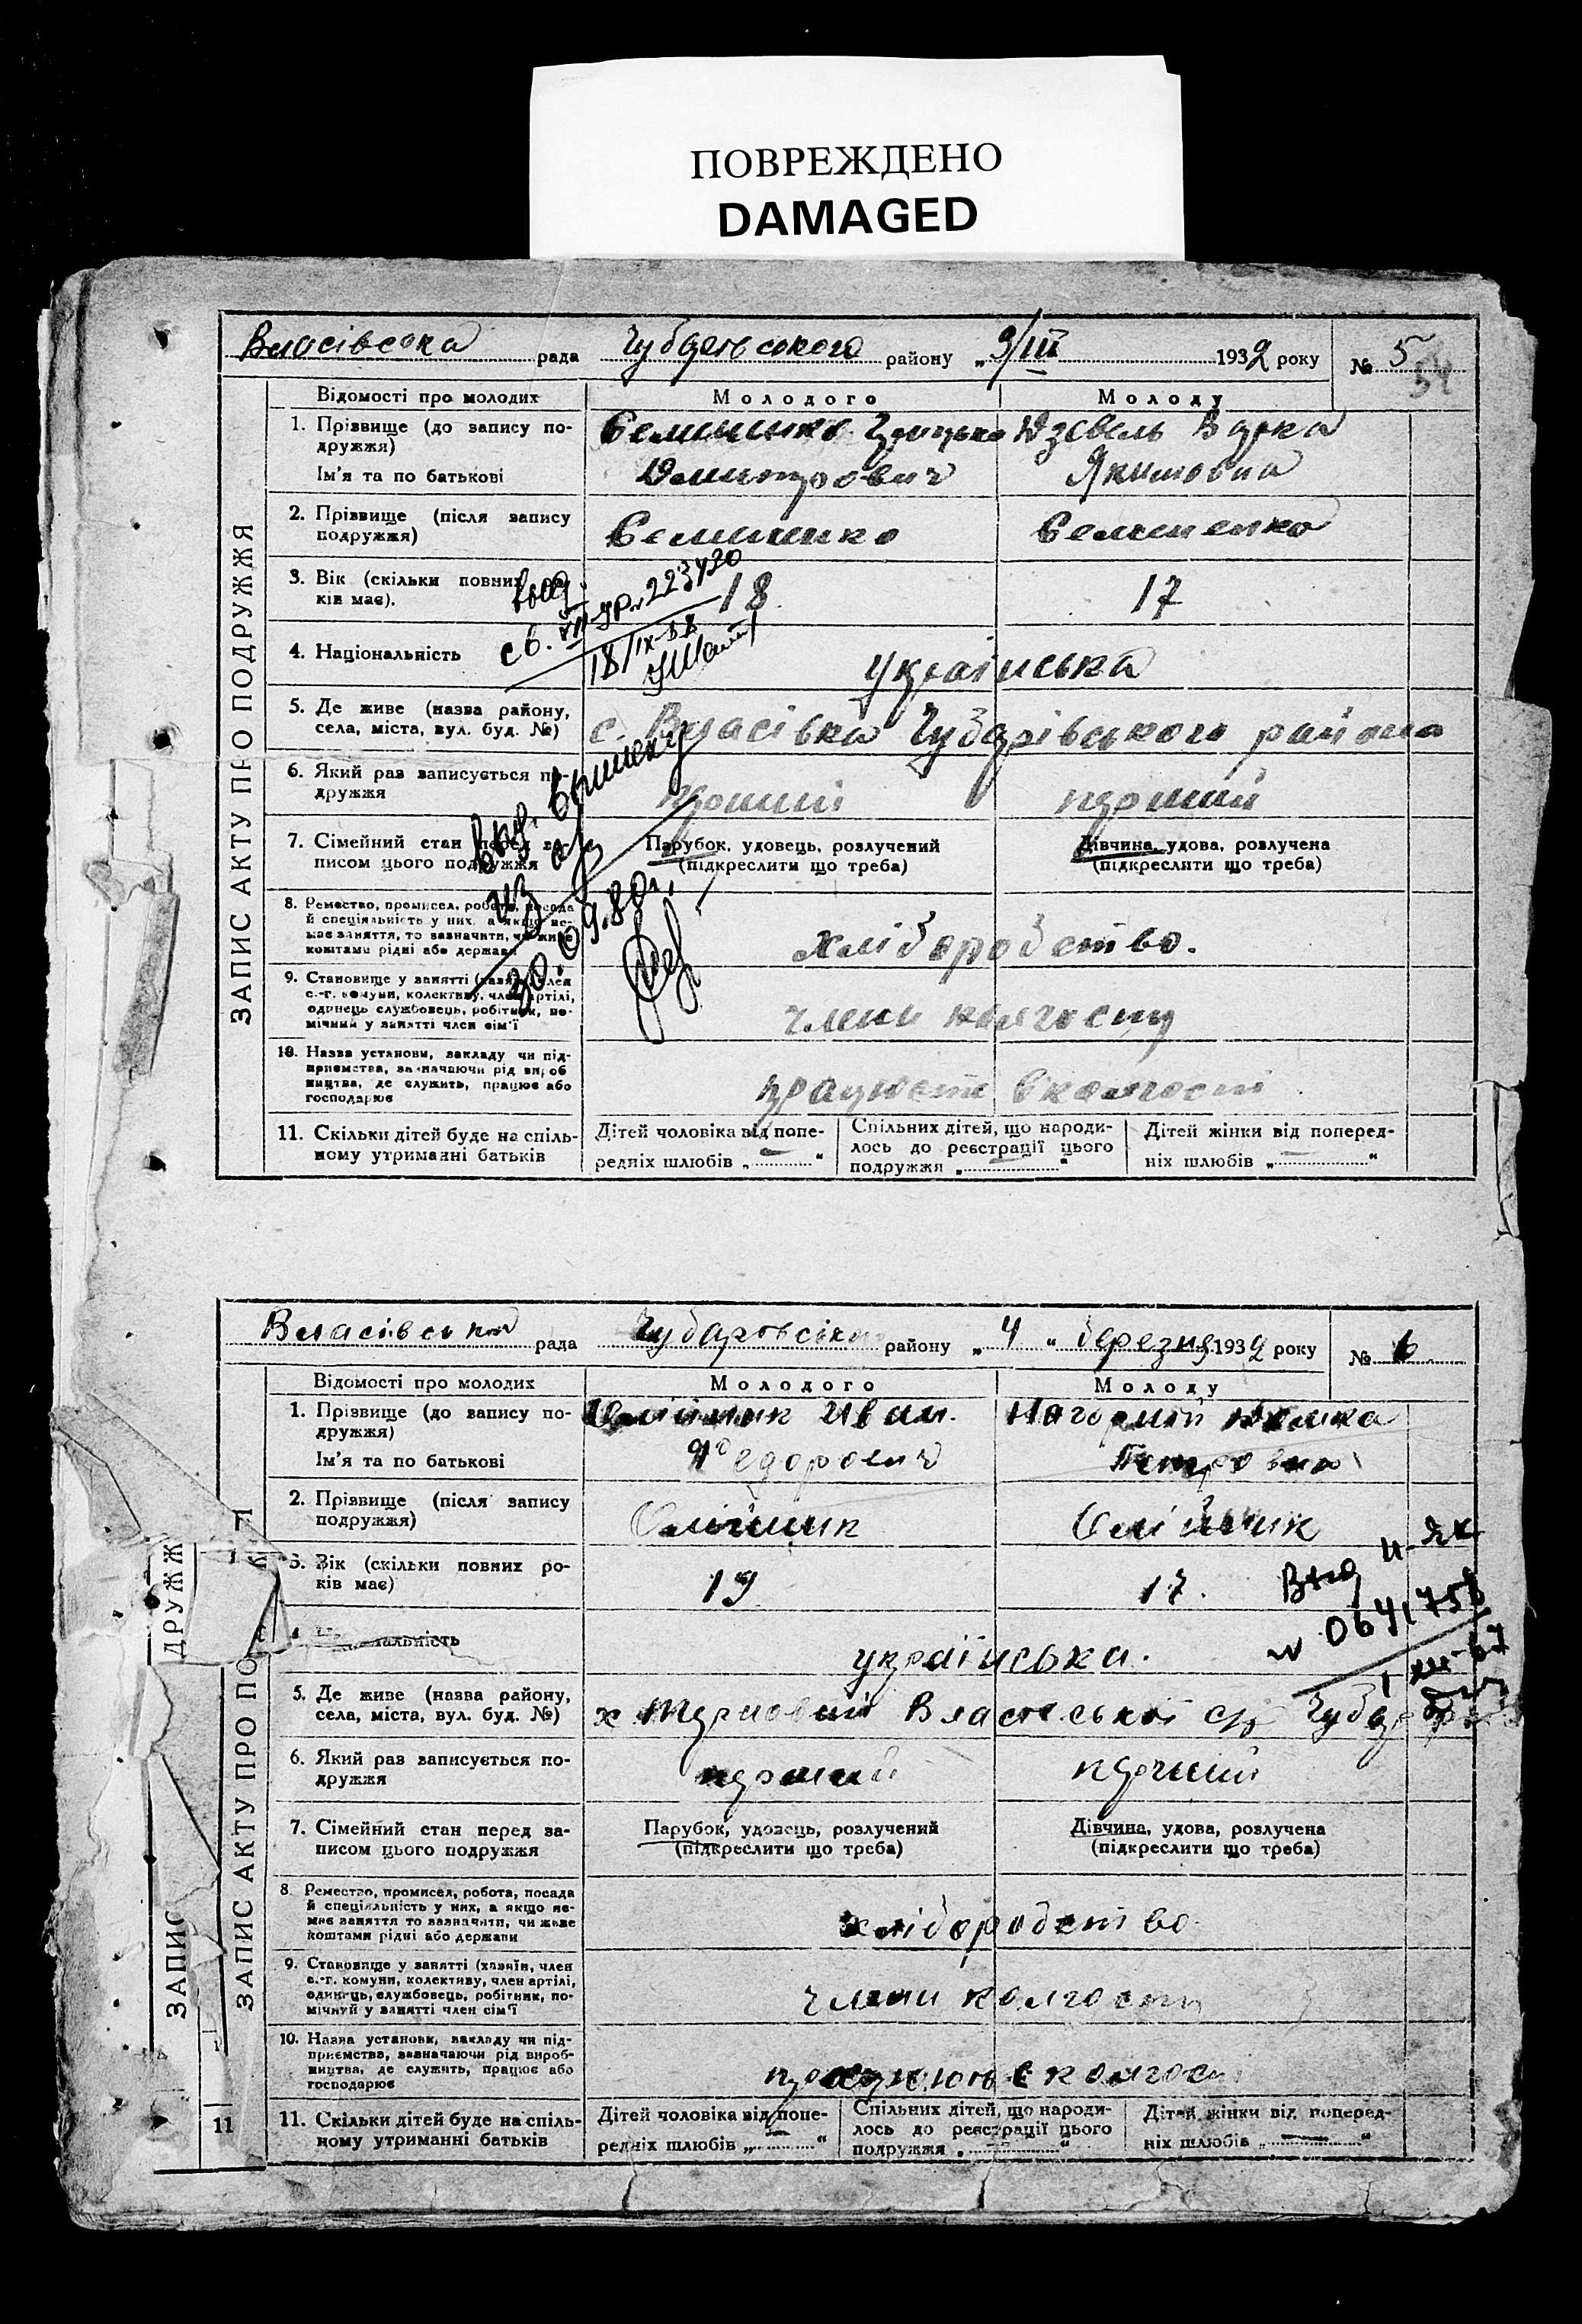 ПОВРЕЖДЕНО
DAMAGED
Власівська рада Чубарівського району „ 3/III 1932 року № 5
54
Відомості про молодих Молодого Молоду
1. Прізвище (до запису по- Семиенко Грицько Дзевель Варка
дружжя)
Ім'я та по батькові Дмитрович Якимовна
2. Прізвище (після запису Семиенко Семененко
подружжя)
3. Вік (скільки повних 18 17
ків має).
вид.
св. VII-ЯР № 223420
18/IX-58
4. Національність українська
5. Де живе (назва району, с. Власівка Чубарівського района
села, міста, вул. буд. №)
6. Який раз записується по- перший перший
дружжя
7. Сімейний стан перед за- Парубок, удовець, розлучений Дівчина, удова, розлучена
писом цього подружжя (підкреслити що треба) (підкреслити що треба)
30.09.80г.
8. Ремество, промисел, робота, посада
й спеціяльність у них, а якщо не-
має заняття, то зазначити, чи живе
коштами рідні або держави хліборобство.
9. Становище у занятті (хазяїн, член
с.-г. комуни, колективу, член артілі,
одинець службовець, робітник, по-
мічний у занятті член сім'ї члени колгоспу
10. Назва установи, закладу чи під-
приємства, зазначаючи рід вироб
ництва, де служить, працює або
господарює працюють в колгоспі
11. Скільки дітей буде на спіль- Дітей чоловіка від попе- Спільних дітей, що народи- Дітей жінки від поперед-
ному утриманні батьків редніх шлюбів „ — “ лось до реєстрації цього ніх шлюбів „ — “
подружжя „ — “
ЗАПИС АКТУ ПРО ПОДРУЖЖЯ
Власівська рада Чубаровська району „ 4 “ березня 1932 року № 6
Відомості про молодих Молодого Молоду
1. Прізвище (до запису по- Олійник Иван.
дружжя)
Ім'я та по батькові Федорович Петровна
2. Прізвище (після запису Олійник Олійник
подружжя)
3. Вік (скільки повних ро- 19 17.
ків має)
Выд II-ЯК
№ 0641756
1 XII-67
українська.
5. Де живе (назва району, х Терновий Власівської с/р
села, міста, вул. буд. №)
6. Який раз записується по- перший перший
дружжя
7. Сімейний стан перед за- Парубок, удовець, розлучений Дівчина, удова, розлучена
писом цього подружжя (підкреслити що треба) (підкреслити що треба)
8 Ремество, промисел, робота, посада
й спеціяльність у них, а якщо не-
має заняття то зазначити, чи живе
коштами рідні або держави хліборобство.
9. Становище у занятті (хазяїн, член
с.-г. комуни, колективу, член артілі,
одинець, службовець, робітник, по-
мічний у занятті член сім'ї члени колгоспу
10. Назва установи, закладу чи під-
приємства, зазначаючи рід вироб-
ництва, де служить, працює або
господарює працюють в колгоспі
11. Скільки дітей буде на спіль- Дітей чоловіка від попе- Спільних дітей, що народи- Дітей жінки від поперед-
ному утриманні батьків редніх шлюбів „ — “ лось до реєстрації цього ніх шлюбів „ — “
подружжя „ — “
ЗАПИС АКТУ ПРО ПО
ДРУЖЖ
ЗАПИС
11